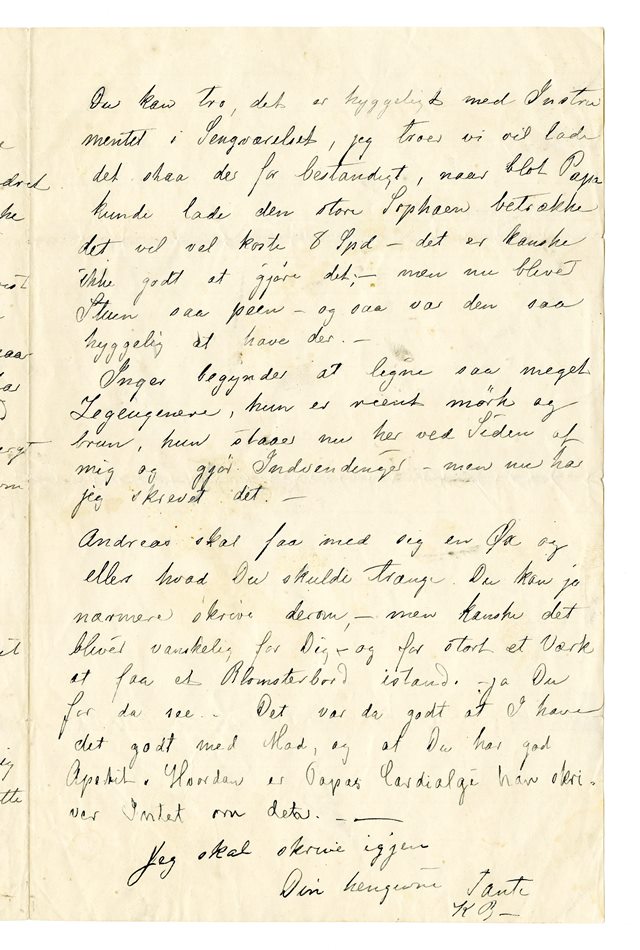 Du kan tro, det er hyggeligt med Instru
mentet i Sengværelset, jeg troer vi vil lade
det staa der for bestandigt, naar blot Papa
kunde lade den store Sophaen betrække
det vil vel koste 8 Spd – det er kanske
ikke godt at gjøre det; – men nu blever
Stuen saa peen – og saa var den saa
hyggelig at have der. –
Inger begynder at ligne saa meget
hun er reent mörk og
brun, hun staaer nu her ved Siden af
mig og gjør Indvendinger – men nu har
jeg skrevet det. –
Andreas skal faa med sig en Øx og
ellers hvad Du skulde trænge. Du kan jo
nærmere skrive derom, – men kanske det
blivér vanskelig for Dig – og for stort et Værk
at faa et Blomsterbord istand. – ja Du
for da see. – Det var da godt at I have
det godt med Mad, og at Du har god
Apetit. Hvordan er Papas Cardialgi han skri-
ver Intet om det. – –
Jeg skal skrive igjen
Din hengivne Tante
K B –